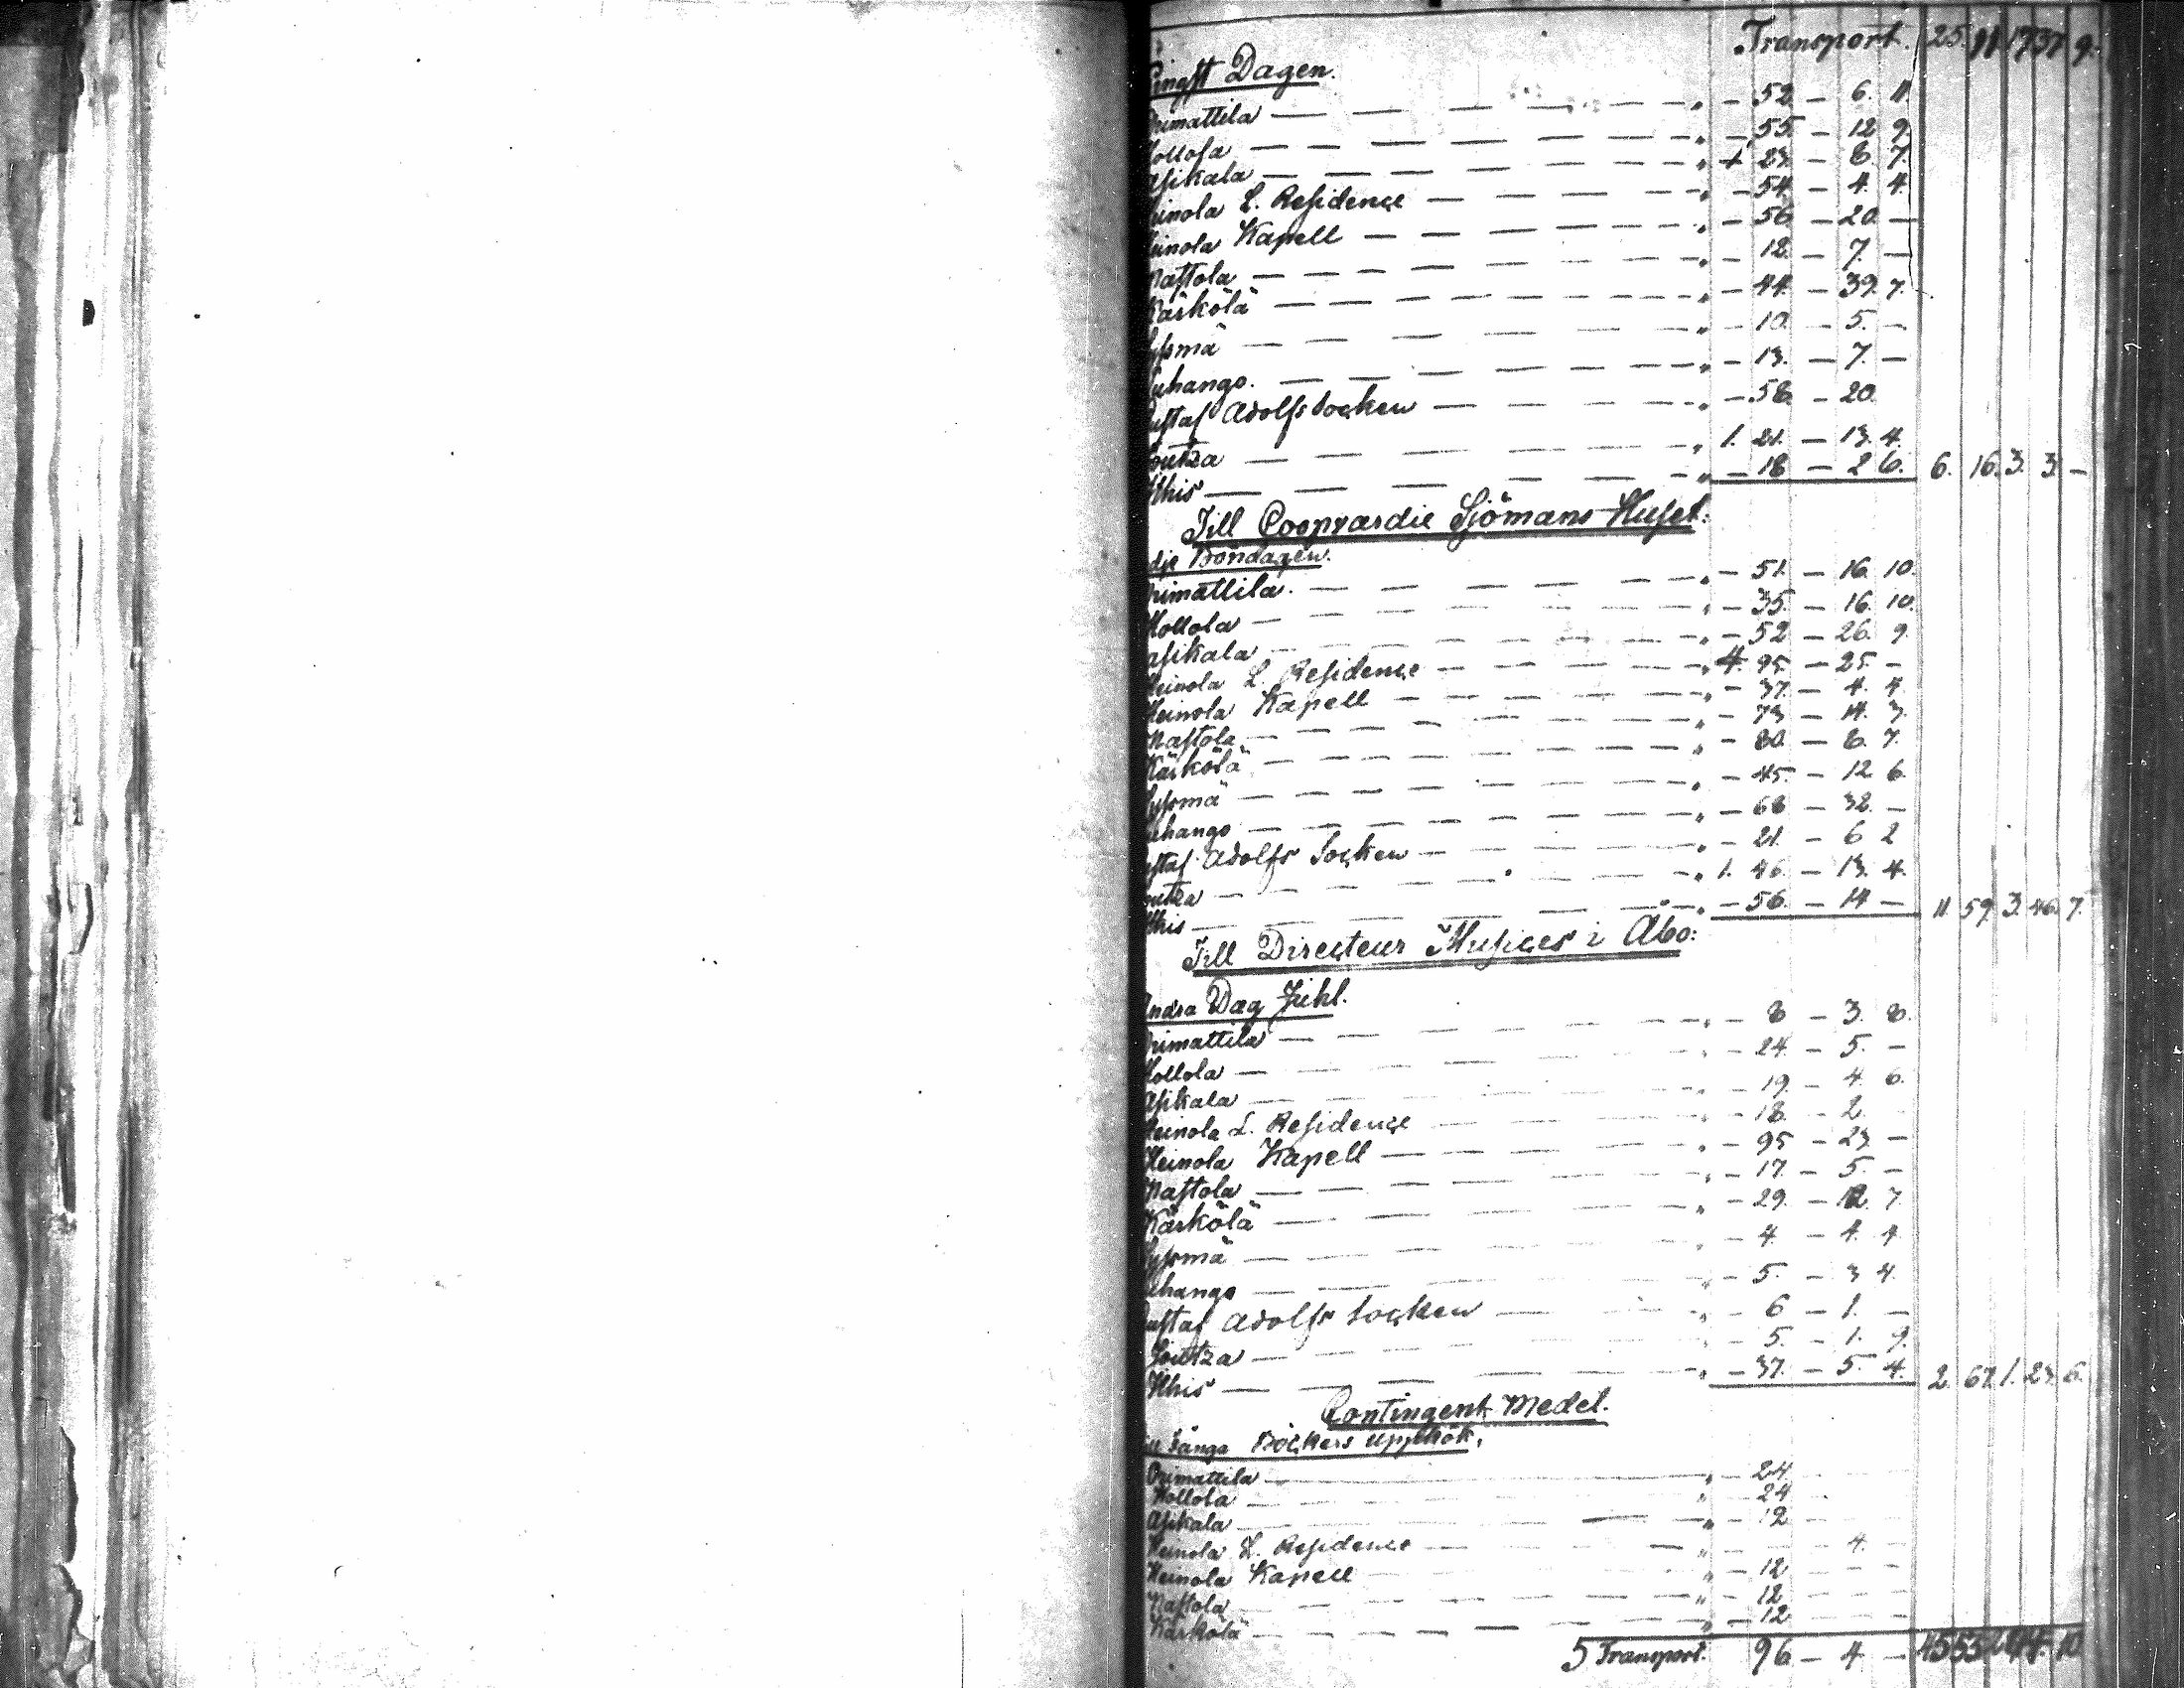 Transport. 25. 11. 17 37. 9.
Pingst Dagen.
Orimattila — — — „ — 52 — 6. 11.
Hollola — — — „ — 55. — 12 9.
Asikala — — — „ + 23. — 8. 7.
Heinola L. Residence — — — „ — 54. — 4. 4.
Heinola Kapell — — — „ — 56 — 20. —
Nastola — — — „ — 12. — 7. —
Kärkölä — — — „ — 44. — 39. 7.
Sysmä — — — „ — 10. — 5. —
Luhango. — — — „ — 13. — 7. —
Gustaf Adolfs Socken — — — „ — 58. — 20.
Joutza — — — „ 1. 21. — 13. 4.
Ithis — — — „ — 18 — 2 6. 6. 16. 3. 3. —
Till Coopvardie Sjömans Huset:
dje Böndagen.
Orimattila. — — — „ — 51. — 16. 10.
Hollola — — — „ — 35. — 16. 10.
Asikala — — — „ — 52 — 26. 9.
Heinola L. Residence — — — „ 4. 95. — 25. —
Heinola Kapell — — — „ — 37. — 4. 4.
Nastola — — — „ — 73 — 14. 3.
Kärkölä — — — „ — 80. — 8. 7.
Sysmä — — — „ — 45. — 12 6.
Luhango — — — „ — 68 — 32. —
Gustaf Adolfs Socken — — — „ — 21. — 6 2
Joutza — — — „ 1. 46. — 13. 4.
Ithis — — — „ — 56. — 14 — 11. 59. 3. 46. 7.
Till Directeur Musices i Åbo:
Andra Dag Juhl.
Orimattila — — — „ — 8 — 3. 8.
Hollola — — — „ — 24. — 5. —
Asikala — — — „ — 19. — 4. 6.
Heinola L. Residence — — — „ — 18. — 2.
Heinola Kapell — — — „ — 95 — 23. —
Nastola — — — „ — 17. — 5. —
Kärkölä — — — „ — 29. — 12. 7.
Sysmä — — — „ — 4. — 4. 4.
Luhango — — — „ — 5. — 3 4.
Gustaf Adolfs Socken — — — „ — 6 — 1. —
Joutza — — — „ — 5. — 1. 9.
Ithis — — — „ — 37. — 5. 4. 2. 67. 1. 23. 6.
Contingent Medel.
Till Fånga Böckers uppkök.
Orimattila — — — „ — 24.
Hollola — — — „ — 24
Asikala — — — „ — 12
Heinola L. Residence — — — „ — 4. —
Heinola Kapell — — — „ — 12
Nastola — — — „ — 12
Kärkölä — — — „ — 12
Transport. 96 — 4 —